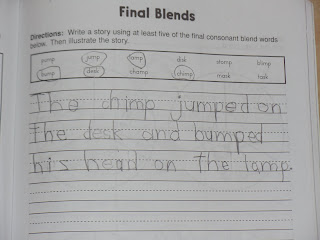 Final Blends
Directions: Write a story using at least five of the final consonant blend words
below. Then illustrate the story.
pump jump lamp disk stomp blimp
bump desk champ chimp mask task
The chimp jumped on
the desk and bumped
his head on the lamp.